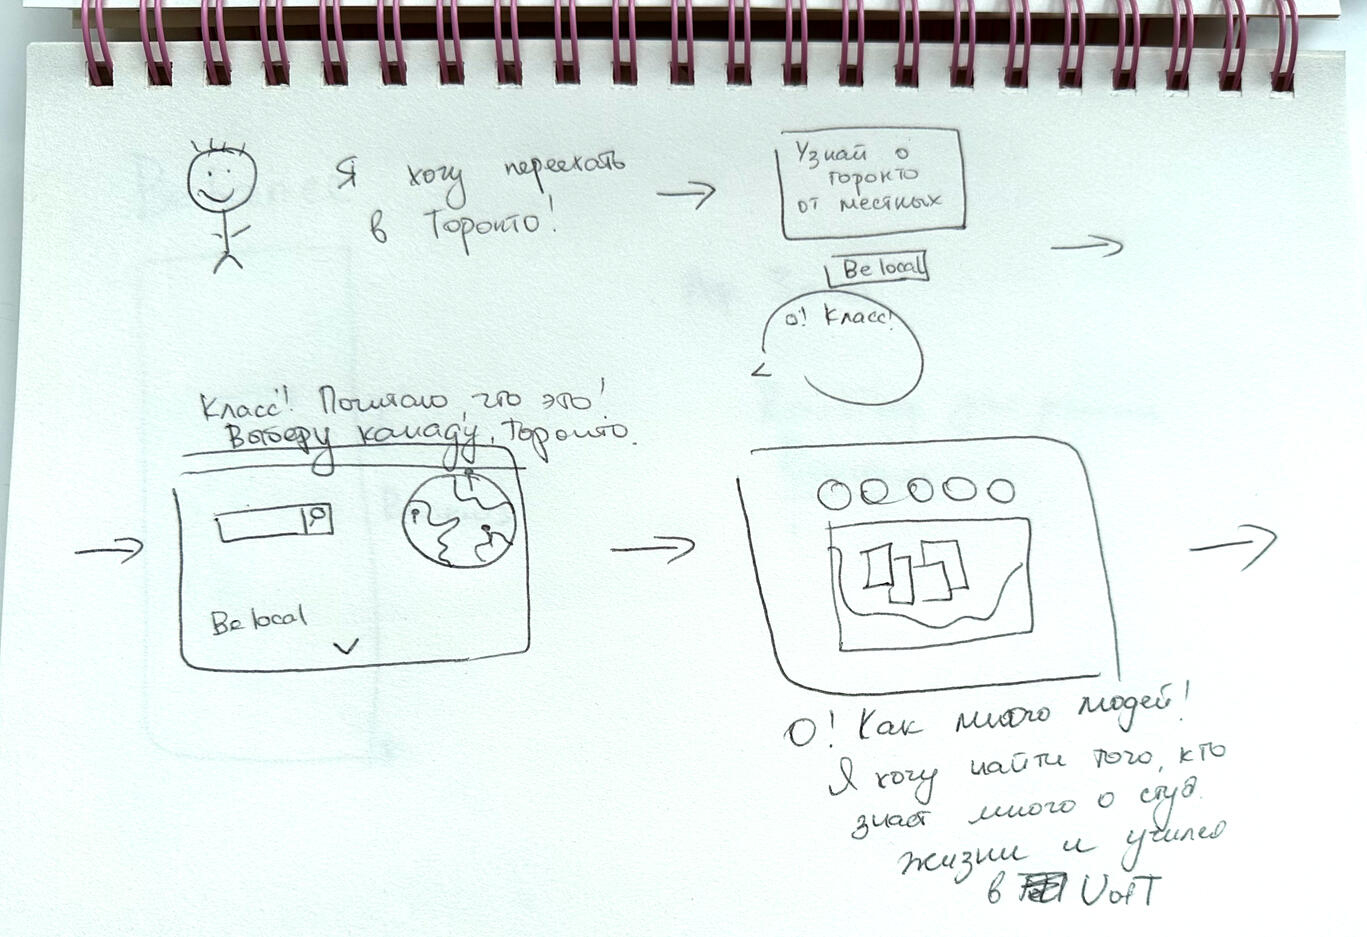 Я хочу переехать
в Торонто!
Узнай о
торонто
от местных
Be local
О! Класс!
Класс! Почитаю, что это!
Выберу канаду, Торонто.
Be local
О! Как много людей!
Я хочу найти того, кто
знает много о студ.
жизни и учился
в UofT